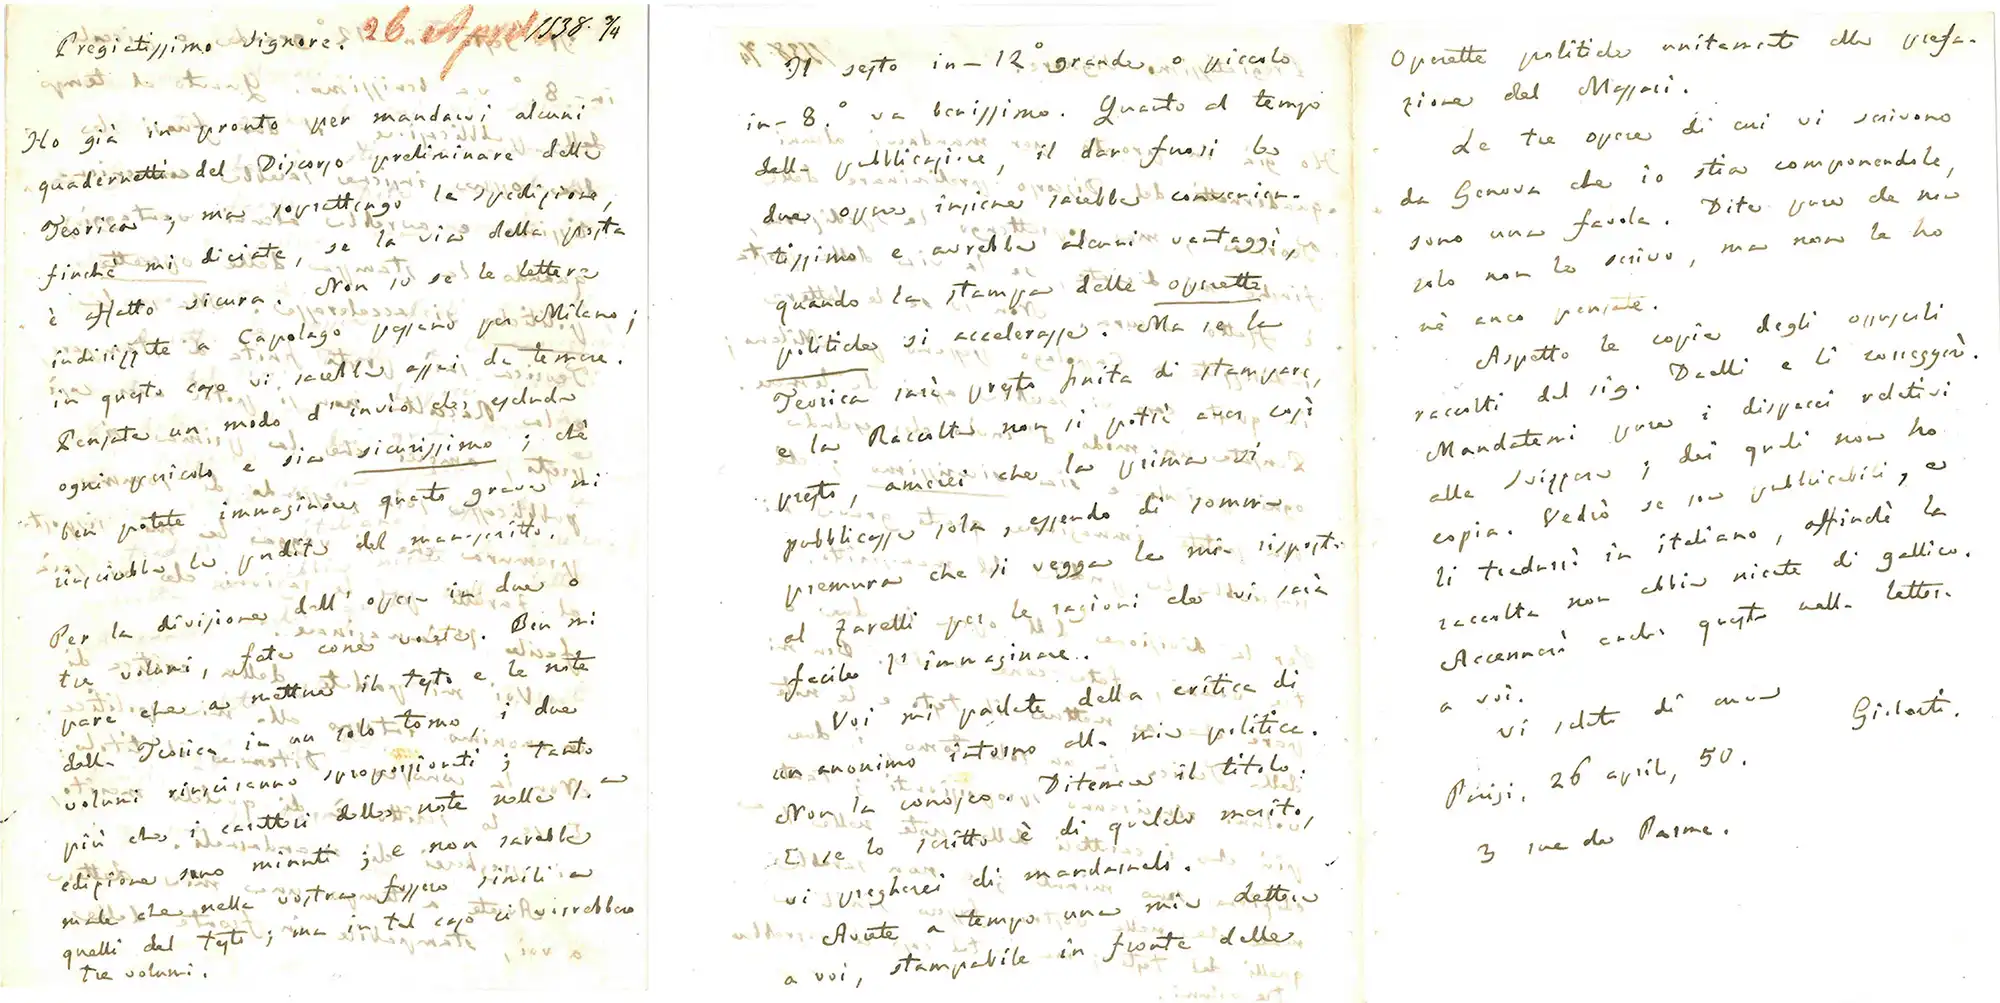 Pregiatissimo Signore. 26 April 1538. 3/4
Ho già in pronto per mandarvi alcuni
quadernetti del Discorso preliminare della
Teorica; ma soprattengo la spedizione,
finchè mi diciate, se la via della posta
è affatto sicura. Non so se le lettere
indirizzate a Capolago passano per Milano;
in questo caso vi sarebbe assai da temere.
Pensate un modo d'invio che escluda
ogni pericolo e sia sicurissimo; chè
ben potete immaginare quanto grave mi
riuscirebbe la perdita del manoscritto.
Per la divisione dell'opera in due o
tre volumi, fate come volete. Ben mi
pare che a mettere il testo e le note
della Teorica in un solo tomo, i due
volumi riusciranno sproporzionati; tanto
più che i caratteri delle note nella 1.a
edizione sono minuti; e non sarebbe
male che nella vostra fossero simili a
quelli del testo; ma in tal caso ci vorrebbero
tre volumi.
Il sesto in-12° grande o piccolo
in-8.° va benissimo. Quanto al tempo
della pubblicazione, il dar fuori le
due opere insieme sarebbe convenien-
tissimo e avrebbe alcuni vantaggi,
quando la stampa delle operette
politiche si accelerasse. Ma se la
Teorica sarà presto finita di stampare,
e la Raccolta non si potrà aver così
presto, amerei che la prima si
pubblicasse sola, essendo di somma
premura che si vegga la mia risposta
al Zarelli per le ragioni che vi sarà
facile l'immaginare.
Voi mi parlate della critica di
un anonimo intorno alla mia politica.
Non la conosco. Ditemene il titolo.
E se lo scritto è di qualche merito,
vi pregherei di mandarmelo.
Avrete a tempo una mia lettera
a voi, stampabile in fronte delle
Operette politiche unitamente alla prefa-
zione del Massari.
Le tre opere di cui vi scrivono
da Genova che io stia componendole,
sono una favola. Dite pure che non
solo non le scrivo, ma non le ho
nè anco pensate.
Aspetto le copie degli opuscoli
raccolti dal sig. Daelli e li correggerò.
Mandatemi pure i dispacci relativi
alla Svizzera; dei quali non ho
copia. Vedrò se son pubblicabili, e
li tradurrò in italiano, affinchè la
raccolta non abbia niente di gallico.
Accennerò anche questo nella lettera
a voi.
Vi saluto di cuore
Gioberti.
Parigi, 26 april, 50.
3 rue de Parme.